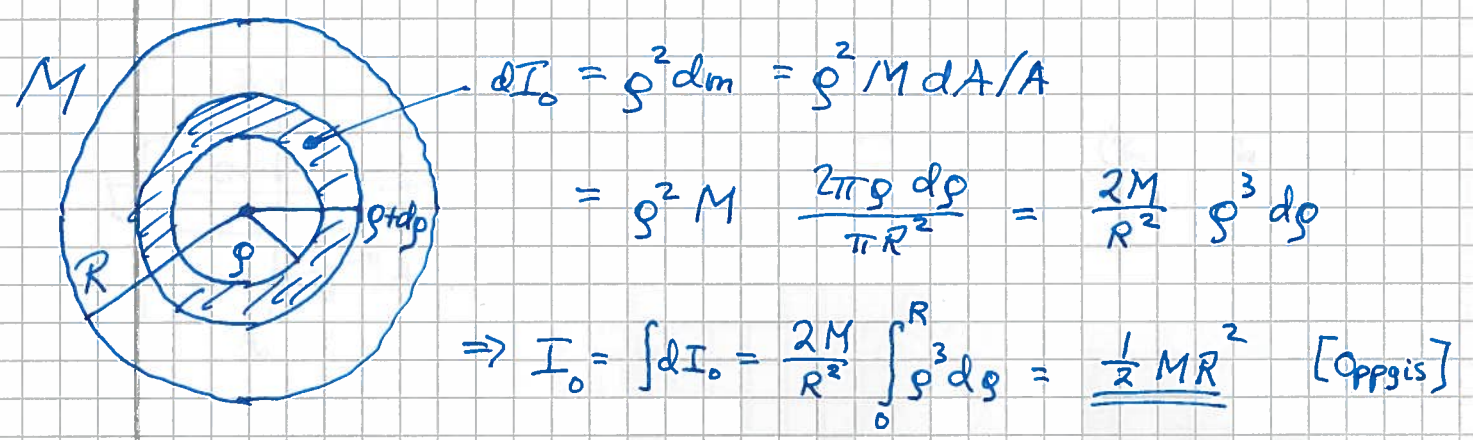 M
dI₀ = ρ² dm = ρ² M dA/A
= ρ² M (2πρ dρ)/(πR²) = (2M/R²) ρ³ dρ
ρ+dρ
ρ
R
⇒ I₀ = ∫dI₀ = (2M/R²) ∫₀ᴿ ρ³ dρ = ½ MR² [Oppgis]